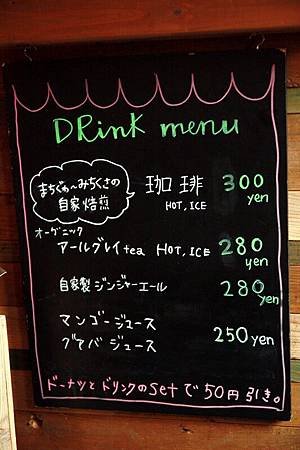 DRink menu
まちぐゎ〜みちくさの
自家焙煎
珈琲 300
HOT, ICE yen
オーガニック
アールグレイ tea HOT, ICE 280
yen
自家製 ジンジャーエール 280
yen
マンゴージュース
グァバ ジュース 250 yen
ドーナツとドリンクのsetで50円引き。